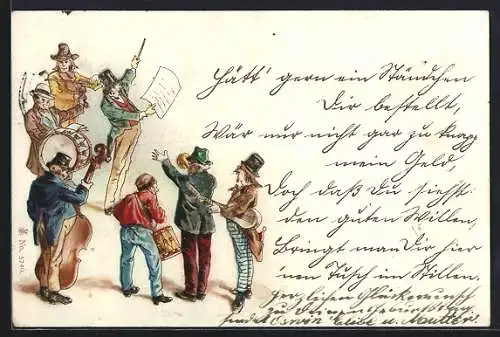 Hätt' gern ein Ständchen
Dir bestellt,
Wär nur nicht gar zu knapp
mein Geld,
Doch daß Du siehst
den guten Willen,
Bringt man Dir hier
nen Tusch im Stillen.
Herzlichen Glückwunsch
zu Deinem Geburtstag
sendet Erwin u. Mutter.
No. 5740.